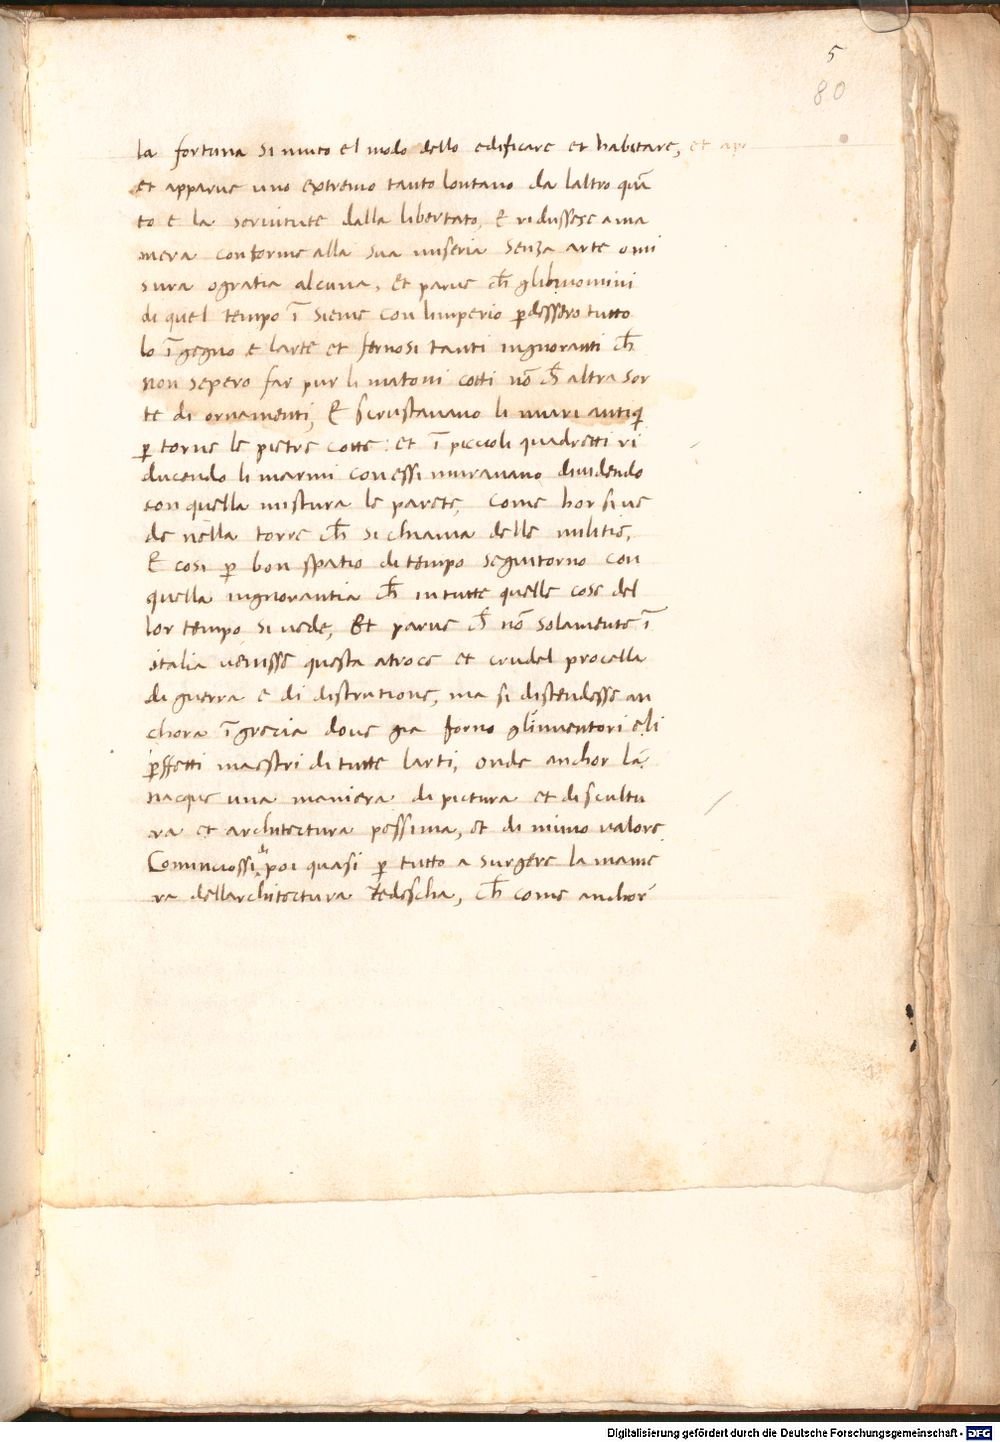 5
80
la fortuna si muto el modo dello edificare et habitare, et app
et apparue uno extremo tanto lontano da laltro quā
to e la seruitute dalla libertato, & ridussese a ma
niera conforme alla sua miseria senza arte o mi
sura o gratia alcuna, et parue ch̄ gli huomini
di quel tempo ī sieme con limperio ꝑdessero tutto
lo īgegno e larte et fernosi tanti ingnoranti ch̄
non sepero far pur li matoni cotti nō ch̄ altra sor
te di ornamenti, & scrustauano li muri antiqi
ꝑ torne le pietre cotte: et ī piccioli quadretti ri
ducendo li marmi con essi murauano diuidendo
con quella mistura le parete, come hor si ue
de nella torre ch̄ si chiama delle militie,
& cosi ꝑ bon spatio di tempo seguitorno con
quella ingnorantia ch̄ in tutte quelle cose del
lor tempo si uede, Et parue ch̄ nō solamente ī
italia uenisse questa atroce et crudel procella
di guerra e di distrutione, ma si distendesse an
chora ī grecia doue gia forno glinuentori e li
ꝑffetti maestri di tutte larti, onde anchor là
nacque una maniera di pictura et di scultu
ra et architectura pessima, et di nimo valore
Cominciossi dipoi quasi ꝑ tutto a surgere la manie
ra dellarchitectura tedescha, ch̄ come anchor
Digitalisierung gefördert durch die Deutsche Forschungsgemeinschaft - DFG